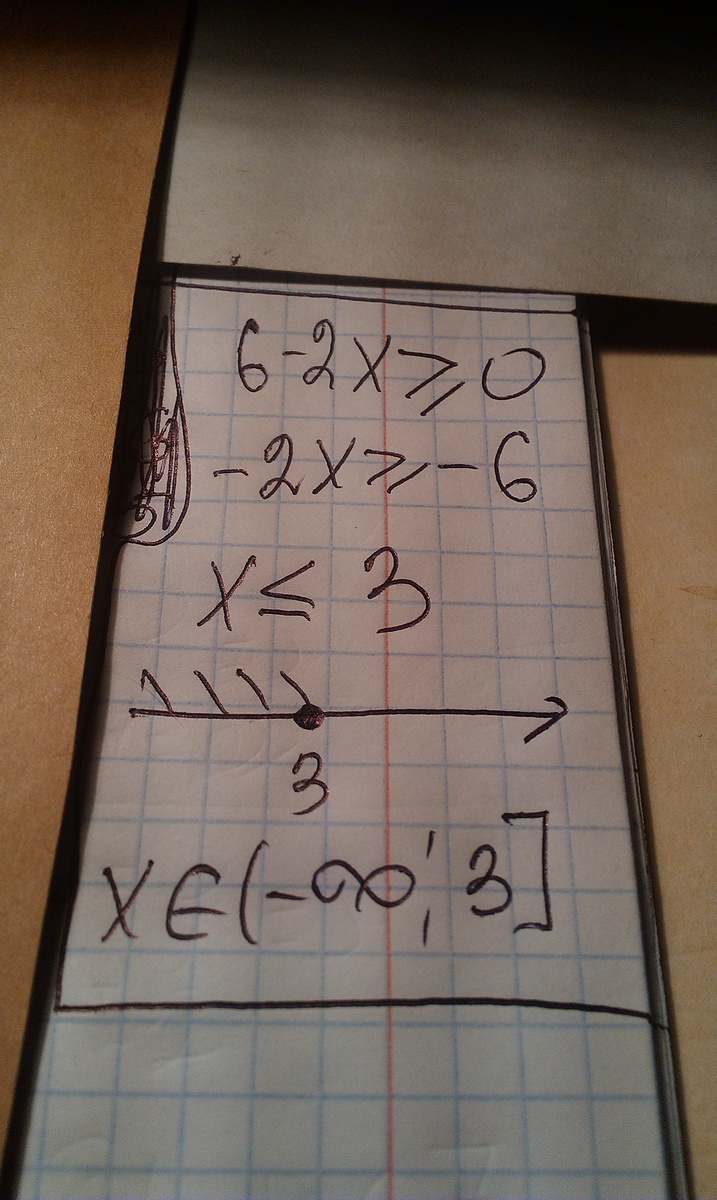 6-2x⩾0
-2x⩾-6
x≤3
3
x∈(-∞;3]